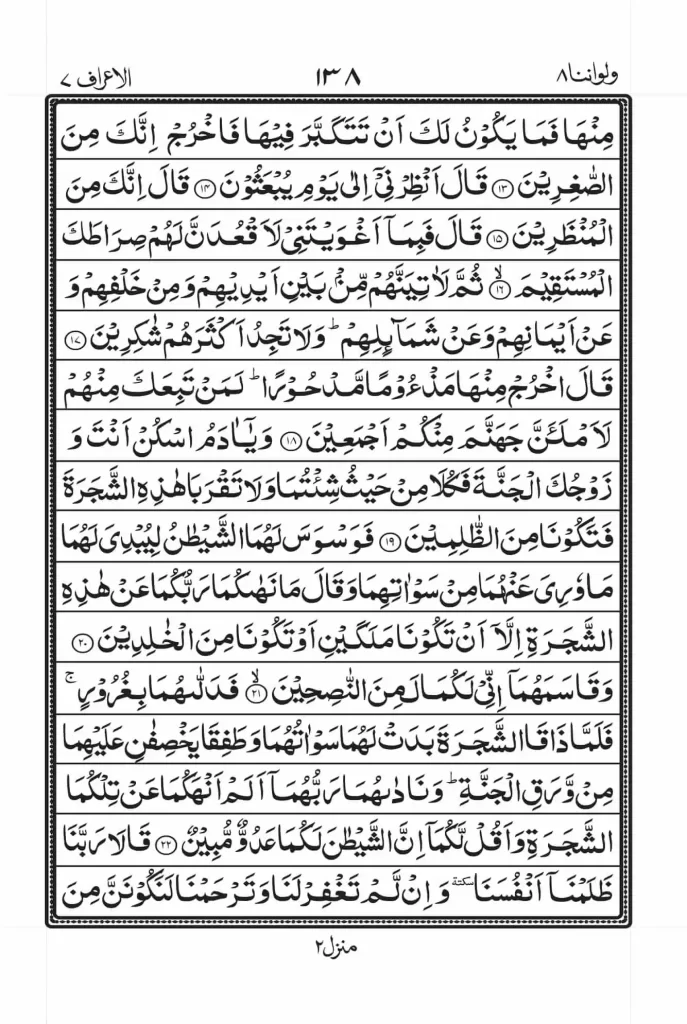 ولواننا ٨
١٣٨
الاعراف ٧
مِنۡهَا فَمَا يَكُوۡنُ لَكَ اَنۡ تَتَكَبَّرَ فِيۡهَا فَاخۡرُجۡ اِنَّكَ مِنَ
الصّٰغِرِيۡنَ ﴿۱۳﴾ قَالَ اَنۡظِرۡنِىۡۤ اِلٰى يَوۡمِ يُبۡعَثُوۡنَ ﴿۱۴﴾ قَالَ اِنَّكَ مِنَ
الۡمُنۡظَرِيۡنَ ﴿۱۵﴾ قَالَ فَبِمَاۤ اَغۡوَيۡتَنِىۡ لَاَقۡعُدَنَّ لَهُمۡ صِرَاطَكَ
الۡمُسۡتَقِيۡمَ ۙ‏﴿۱۶﴾ ثُمَّ لَاٰتِيَنَّهُمۡ مِّنۡۢ بَيۡنِ اَيۡدِيۡهِمۡ وَمِنۡ خَلۡفِهِمۡ وَ
عَنۡ اَيۡمَانِهِمۡ وَعَنۡ شَمَآٮِٕلِهِمۡ‌ؕ وَلَا تَجِدُ اَكۡثَرَهُمۡ شٰكِرِيۡنَ ﴿۱۷﴾
قَالَ اخۡرُجۡ مِنۡهَا مَذۡءُوۡمًا مَّدۡحُوۡرًا‌ ؕ لَمَنۡ تَبِعَكَ مِنۡهُمۡ
لَاَمۡلَئَنَّ جَهَنَّمَ مِنۡكُمۡ اَجۡمَعِيۡنَ ﴿۱۸﴾ وَيٰۤاٰدَمُ اسۡكُنۡ اَنۡتَ وَ
زَوۡجُكَ الۡجَـنَّةَ فَكُلَا مِنۡ حَيۡثُ شِئۡتُمَا وَلَا تَقۡرَبَا هٰذِهِ الشَّجَرَةَ
فَتَكُوۡنَا مِنَ الظّٰلِمِيۡنَ ﴿۱۹﴾ فَوَسۡوَسَ لَهُمَا الشَّيۡطٰنُ لِيُبۡدِىَ لَهُمَا
مَا وٗرِىَ عَنۡهُمَا مِنۡ سَوۡاٰتِهِمَا وَقَالَ مَا نَهٰٮكُمَا رَبُّكُمَا عَنۡ هٰذِهِ
الشَّجَرَةِ اِلَّاۤ اَنۡ تَكُوۡنَا مَلَـكَيۡنِ اَوۡ تَكُوۡنَا مِنَ الۡخٰلِدِيۡنَ ﴿۲۰﴾
وَقَاسَمَهُمَاۤ اِنِّىۡ لَـكُمَا لَمِنَ النّٰصِحِيۡنَ ۙ‏﴿۲۱﴾ فَدَلّٰٮهُمَا بِغُرُوۡرٍ‌ ۚ
فَلَمَّا ذَاقَا الشَّجَرَةَ بَدَتۡ لَهُمَا سَوۡاٰتُهُمَا وَطَفِقَا يَخۡصِفٰنِ عَلَيۡهِمَا
مِنۡ وَّرَقِ الۡجَـنَّةِ‌ ؕ وَنَادٰٮهُمَا رَبُّهُمَاۤ اَلَمۡ اَنۡهَكُمَا عَنۡ تِلۡكُمَا
الشَّجَرَةِ وَاَقُلْ لَّـكُمَاۤ اِنَّ الشَّيۡطٰنَ لَـكُمَا عَدُوٌّ مُّبِيۡنٌ ﴿۲۲﴾ قَالَا رَبَّنَا
ظَلَمۡنَاۤ اَنۡفُسَنَا سكتة وَاِنۡ لَّمۡ تَغۡفِرۡ لَـنَا وَتَرۡحَمۡنَا لَـنَكُوۡنَنَّ مِنَ
منزل ٢